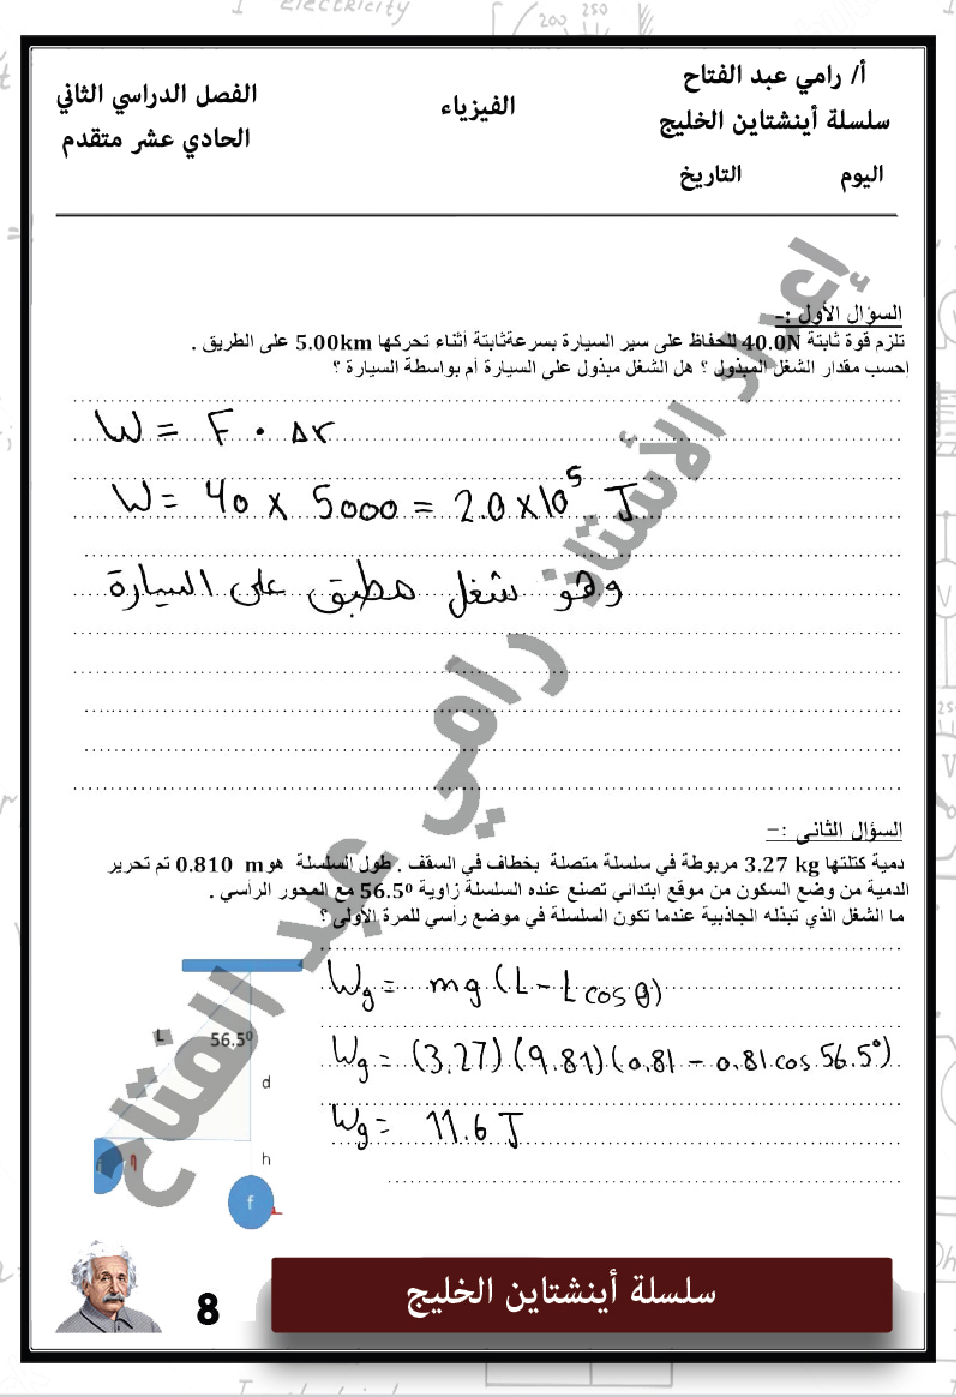 أ/ رامي عبد الفتاح
سلسلة أينشتاين الخليج
اليوم
التاريخ
الفيزياء
الفصل الدراسي الثاني
الحادي عشر متقدم
إعداد الأستاذ رامي عبد الفتاح
السؤال الأول :-
تلزم قوة ثابتة 40.0N للحفاظ على سير السيارة بسرعةثابتة أثناء تحركها 5.00km على الطريق .
إحسب مقدار الشغل المبذول ؟ هل الشغل مبذول على السيارة أم بواسطة السيارة ؟
W = F • Δr
W = 40 x 5000 = 2.0 x10⁵ J
وهو شغل مطبق على السيارة
السؤال الثاني :-
دمية كتلتها 3.27 kg مربوطة في سلسلة متصلة بخطاف في السقف . طول السلسلة هو 0.810 m تم تحرير
الدمية من وضع السكون من موقع ابتدائي تصنع عنده السلسلة زاوية 56.5⁰ مع المحور الرأسي .
ما الشغل الذي تبذله الجاذبية عندما تكون السلسلة في موضع رأسي للمرة الأولى ؟
Wg = mg (L - L cos θ)
Wg = (3.27) (9.81) (0.81 - 0.81 cos 56.5°)
Wg = 11.6 J
L
56.5⁰
d
h
i
f
8
سلسلة أينشتاين الخليج